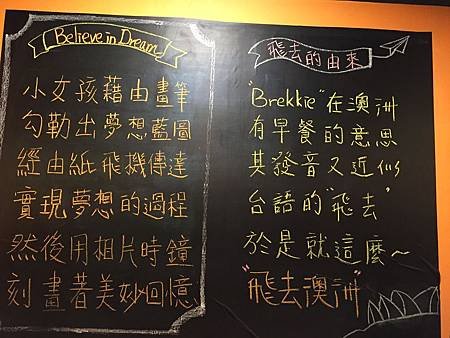 Believe in Dream!
小女孩藉由畫筆
勾勒出夢想藍圖
經由紙飛機傳達
實現夢想的過程
然後用相片時鐘
刻畫著美妙回憶
飛去的由來
"Brekkie"在澳洲
有早餐的意思
其發音又近似
台語的"飛去"
於是就這麼~
"飛去澳洲"